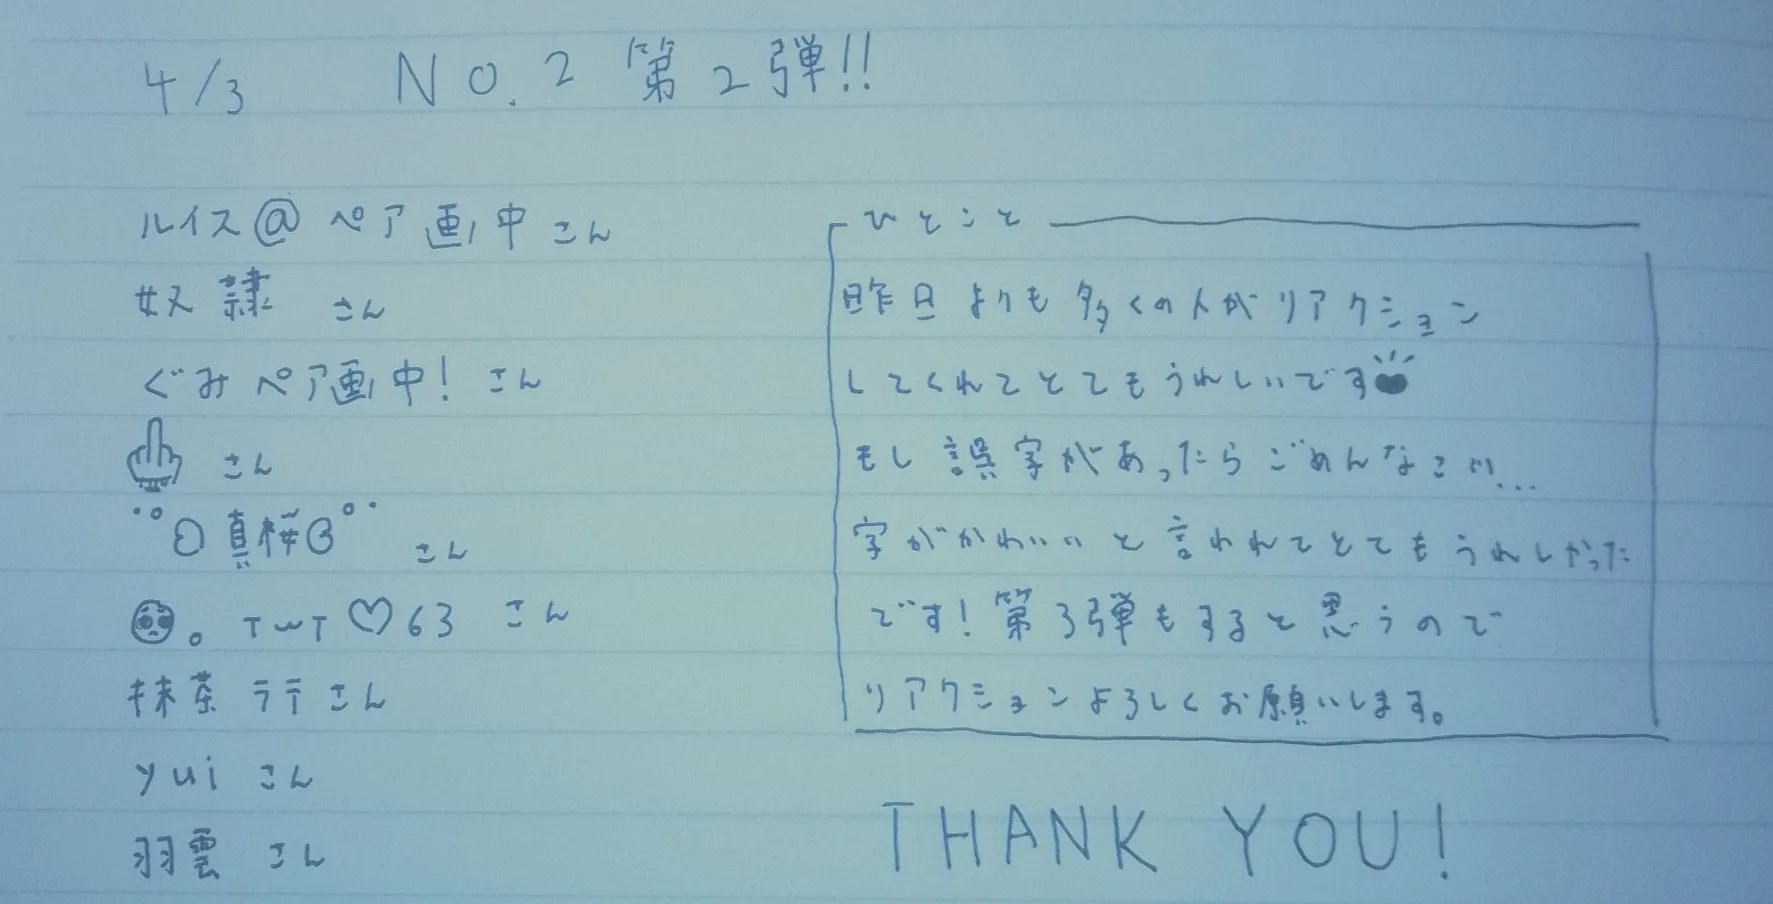 4/3 NO.2 第2弾!!
ルイス@ペア画中さん
奴隷 さん
ぐみペア画中! さん
さん
真桜 さん
。T~T♡63 さん
抹茶ラテさん
yui さん
羽雲 さん
ひとこと
昨日よりも多くの人がリアクション
してくれてとてもうれしいです
もし誤字があったらごめんなさい...
字がかわいいと言われてとてもうれしかった
です!第3弾もすると思うので
リアクションよろしくお願いします。
THANK YOU!